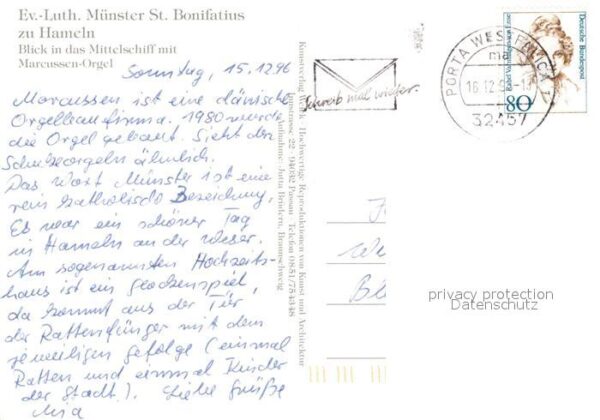 Ev.-Luth. Münster St. Bonifatius
zu Hameln
Blick in das Mittelschiff mit
Marcussen-Orgel
Sonntag, 15.12.96
Marcussen ist eine dänische
Orgelbaufirma. 1980 wurde
die Orgel gebaut. Sieht den
Schukeorgeln ähnlich.
Das Wort Münster ist eine
rein katholische Bezeichnung.
Es war ein schöner Tag
in Hameln an der Weser.
Am sogenannten Hochzeits-
haus ist ein Glockenspiel,
da kommt aus der Tür
der Rattenfänger mit dem
jeweiligen Gefolge (einmal
Ratten und einmal Kinder
der Stadt). Liebe Grüße
Kunstverlag Hochwertige Reproduktionen von Kunst und Architektur
22 · 94032 Passau · Telefon 0851/754348
Aufnahme: Jutta Brüdern, Braunschweig
Schreib mal wieder.
PORTA WESTFALICA 1
ma
16.12.96
32457
Deutsche Bundespost
80
privacy protection
Datenschutz